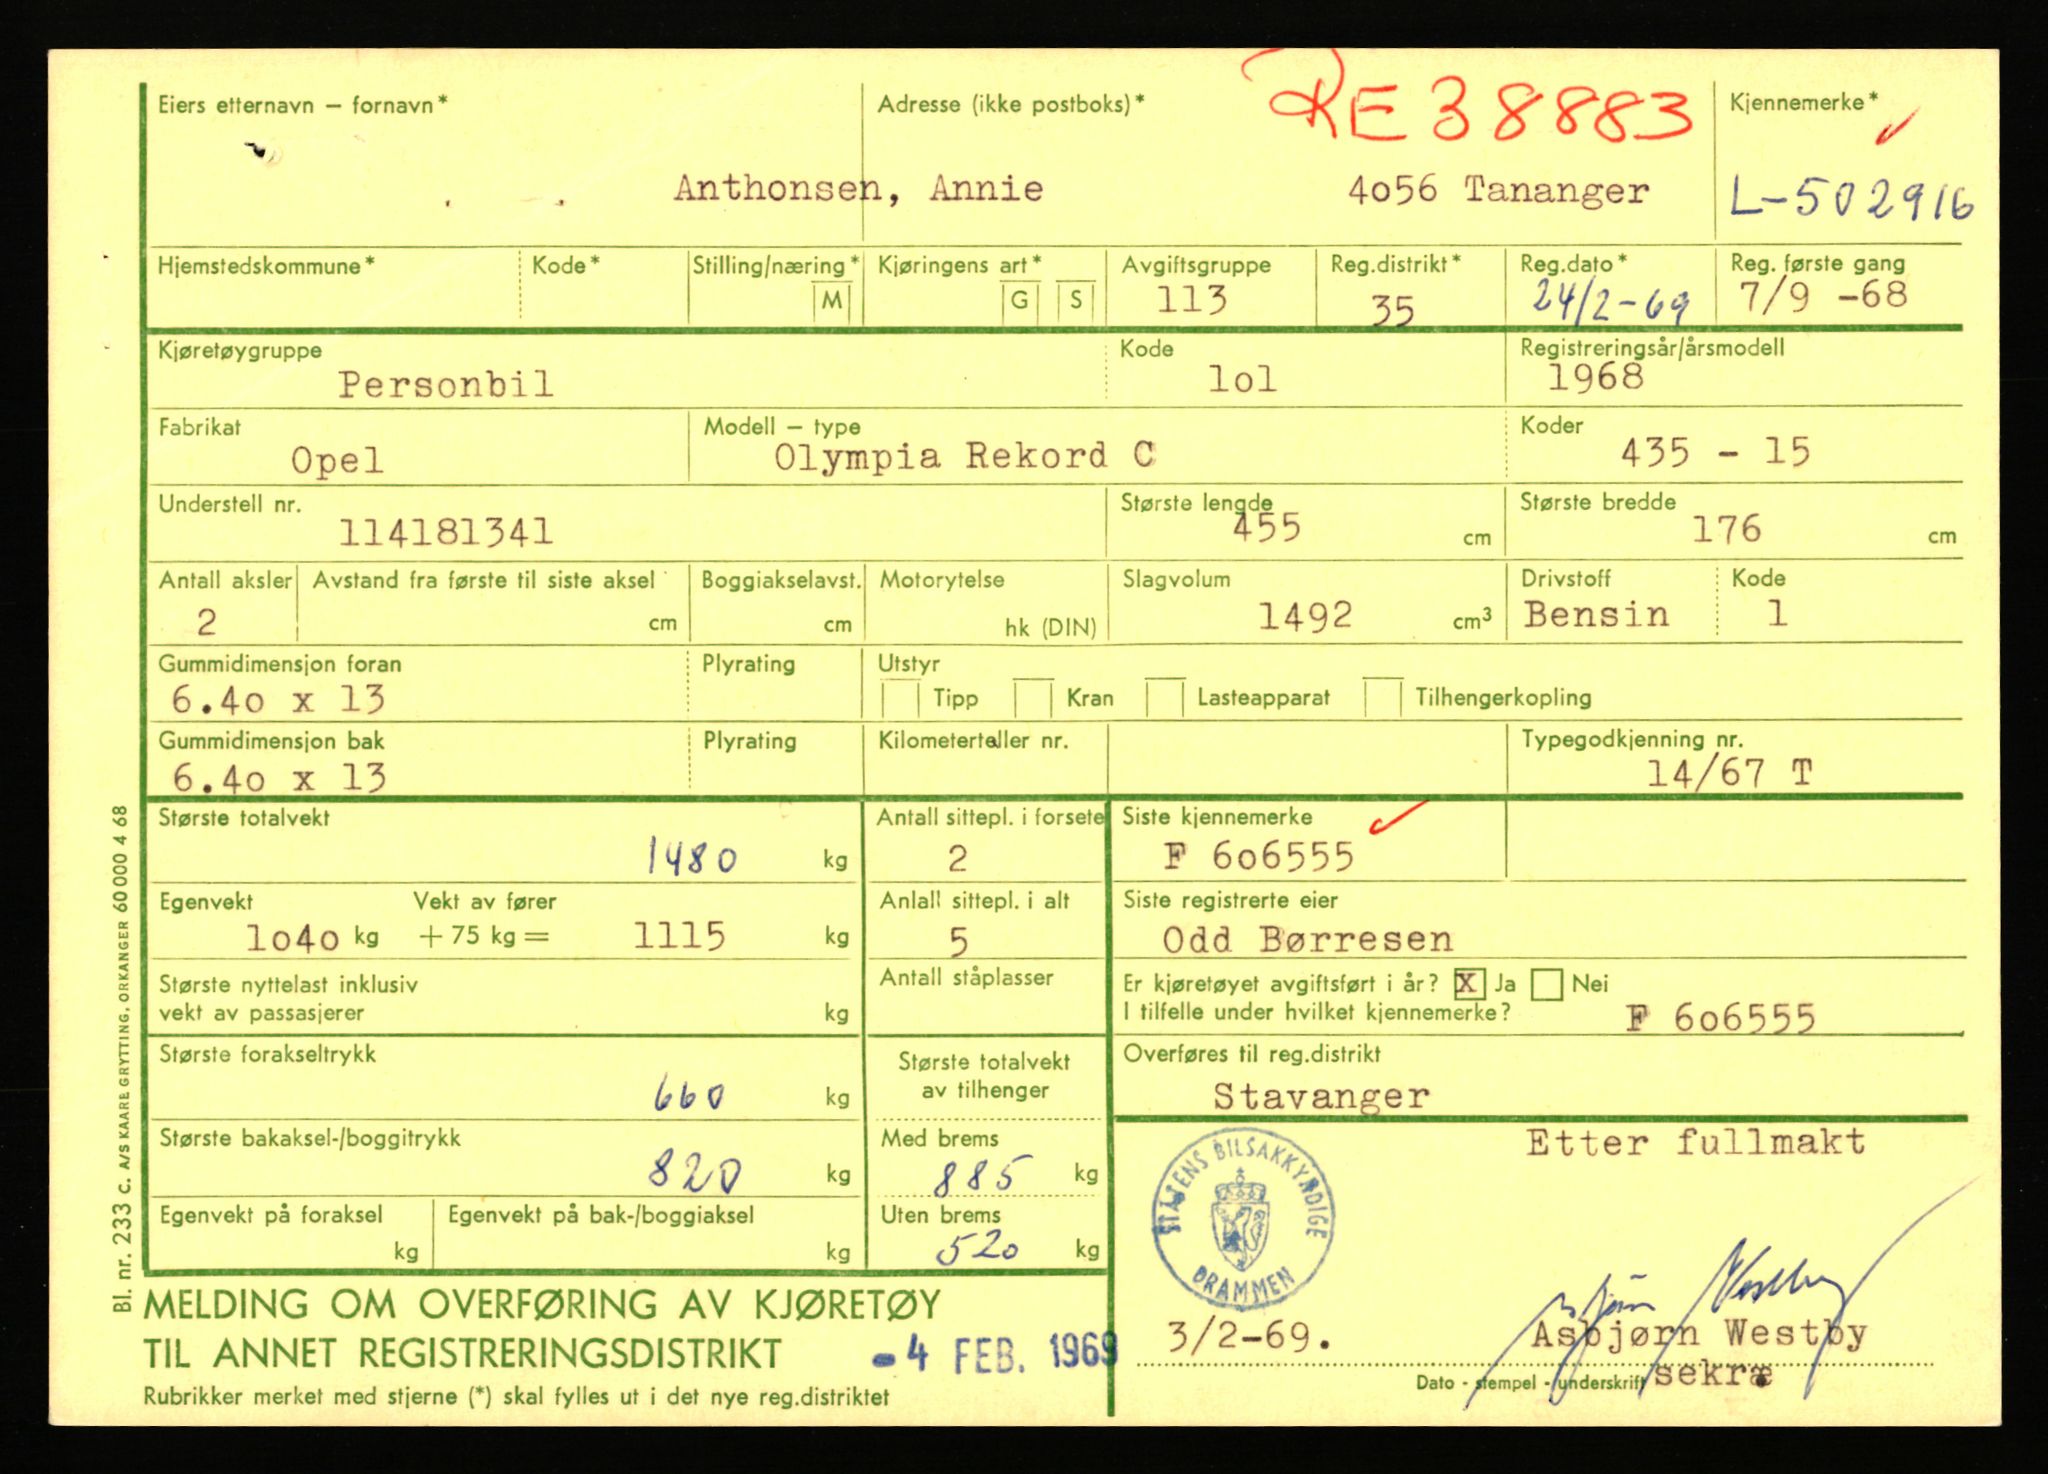 RE 38883
Eiers etternavn – fornavn* Adresse (ikke postboks)* Kjennemerke*
Anthonsen, Annie 4o56 Tananger L-502916
Hjemstedskommune* Kode* Stilling/næring* M Kjøringens art* G S Avgiftsgruppe Reg.distrikt* Reg.dato* Reg. første gang
113 35 24/2-69 7/9 -68
Kjøretøygruppe Kode Registreringsår/årsmodell
Personbil lol 1968
Fabrikat Modell – type Koder
Opel Olympia Rekord C 435 - 15
Understell nr. Største lengde Største bredde
114181341 455 cm 176 cm
Antall aksler Avstand fra første til siste aksel Boggiakselavst. Motorytelse Slagvolum Drivstoff Kode
2 cm cm hk (DIN) 1492 cm³ Bensin 1
Gummidimensjon foran Plyrating Utstyr
6.4o x 13 Tipp Kran Lasteapparat Tilhengerkopling
Gummidimensjon bak Plyrating Kilometerteller nr. Typegodkjenning nr.
6.4o x 13 14/67 T
Største totalvekt Antall sittepl. i forsete Siste kjennemerke
1480 kg 2 F 6o6555
Egenvekt Vekt av fører Anlall sittepl. i alt Siste registrerte eier
1o4o kg + 75 kg = 1115 kg 5 Odd Børresen
Største nyttelast inklusiv vekt av passasjerer kg Antall ståplasser Er kjøretøyet avgiftsført i år? X Ja Nei
I tilfelle under hvilket kjennemerke? F 6o6555
Største forakseltrykk Største totalvekt av tilhenger Overføres til reg.distrikt
660 kg Stavanger
Største bakaksel-/boggitrykk Med brems Etter fullmakt
820 kg 885 kg
Egenvekt på foraksel Egenvekt på bak-/boggiaksel Uten brems
kg kg 520 kg
STATENS BILSAKKYNDIGE DRAMMEN
Asbjørn Westby
MELDING OM OVERFØRING AV KJØRETØY
TIL ANNET REGISTRERINGSDISTRIKT
-4 FEB. 1969
3/2-69. Asbjørn Westby
sekræ
Dato - stempel - underskrift
Rubrikker merket med stjerne (*) skal fylles ut i det nye reg.distriktet
Bl. nr. 233 c. A/S KAARE GRYTTING, ORKANGER 60 000 4 68